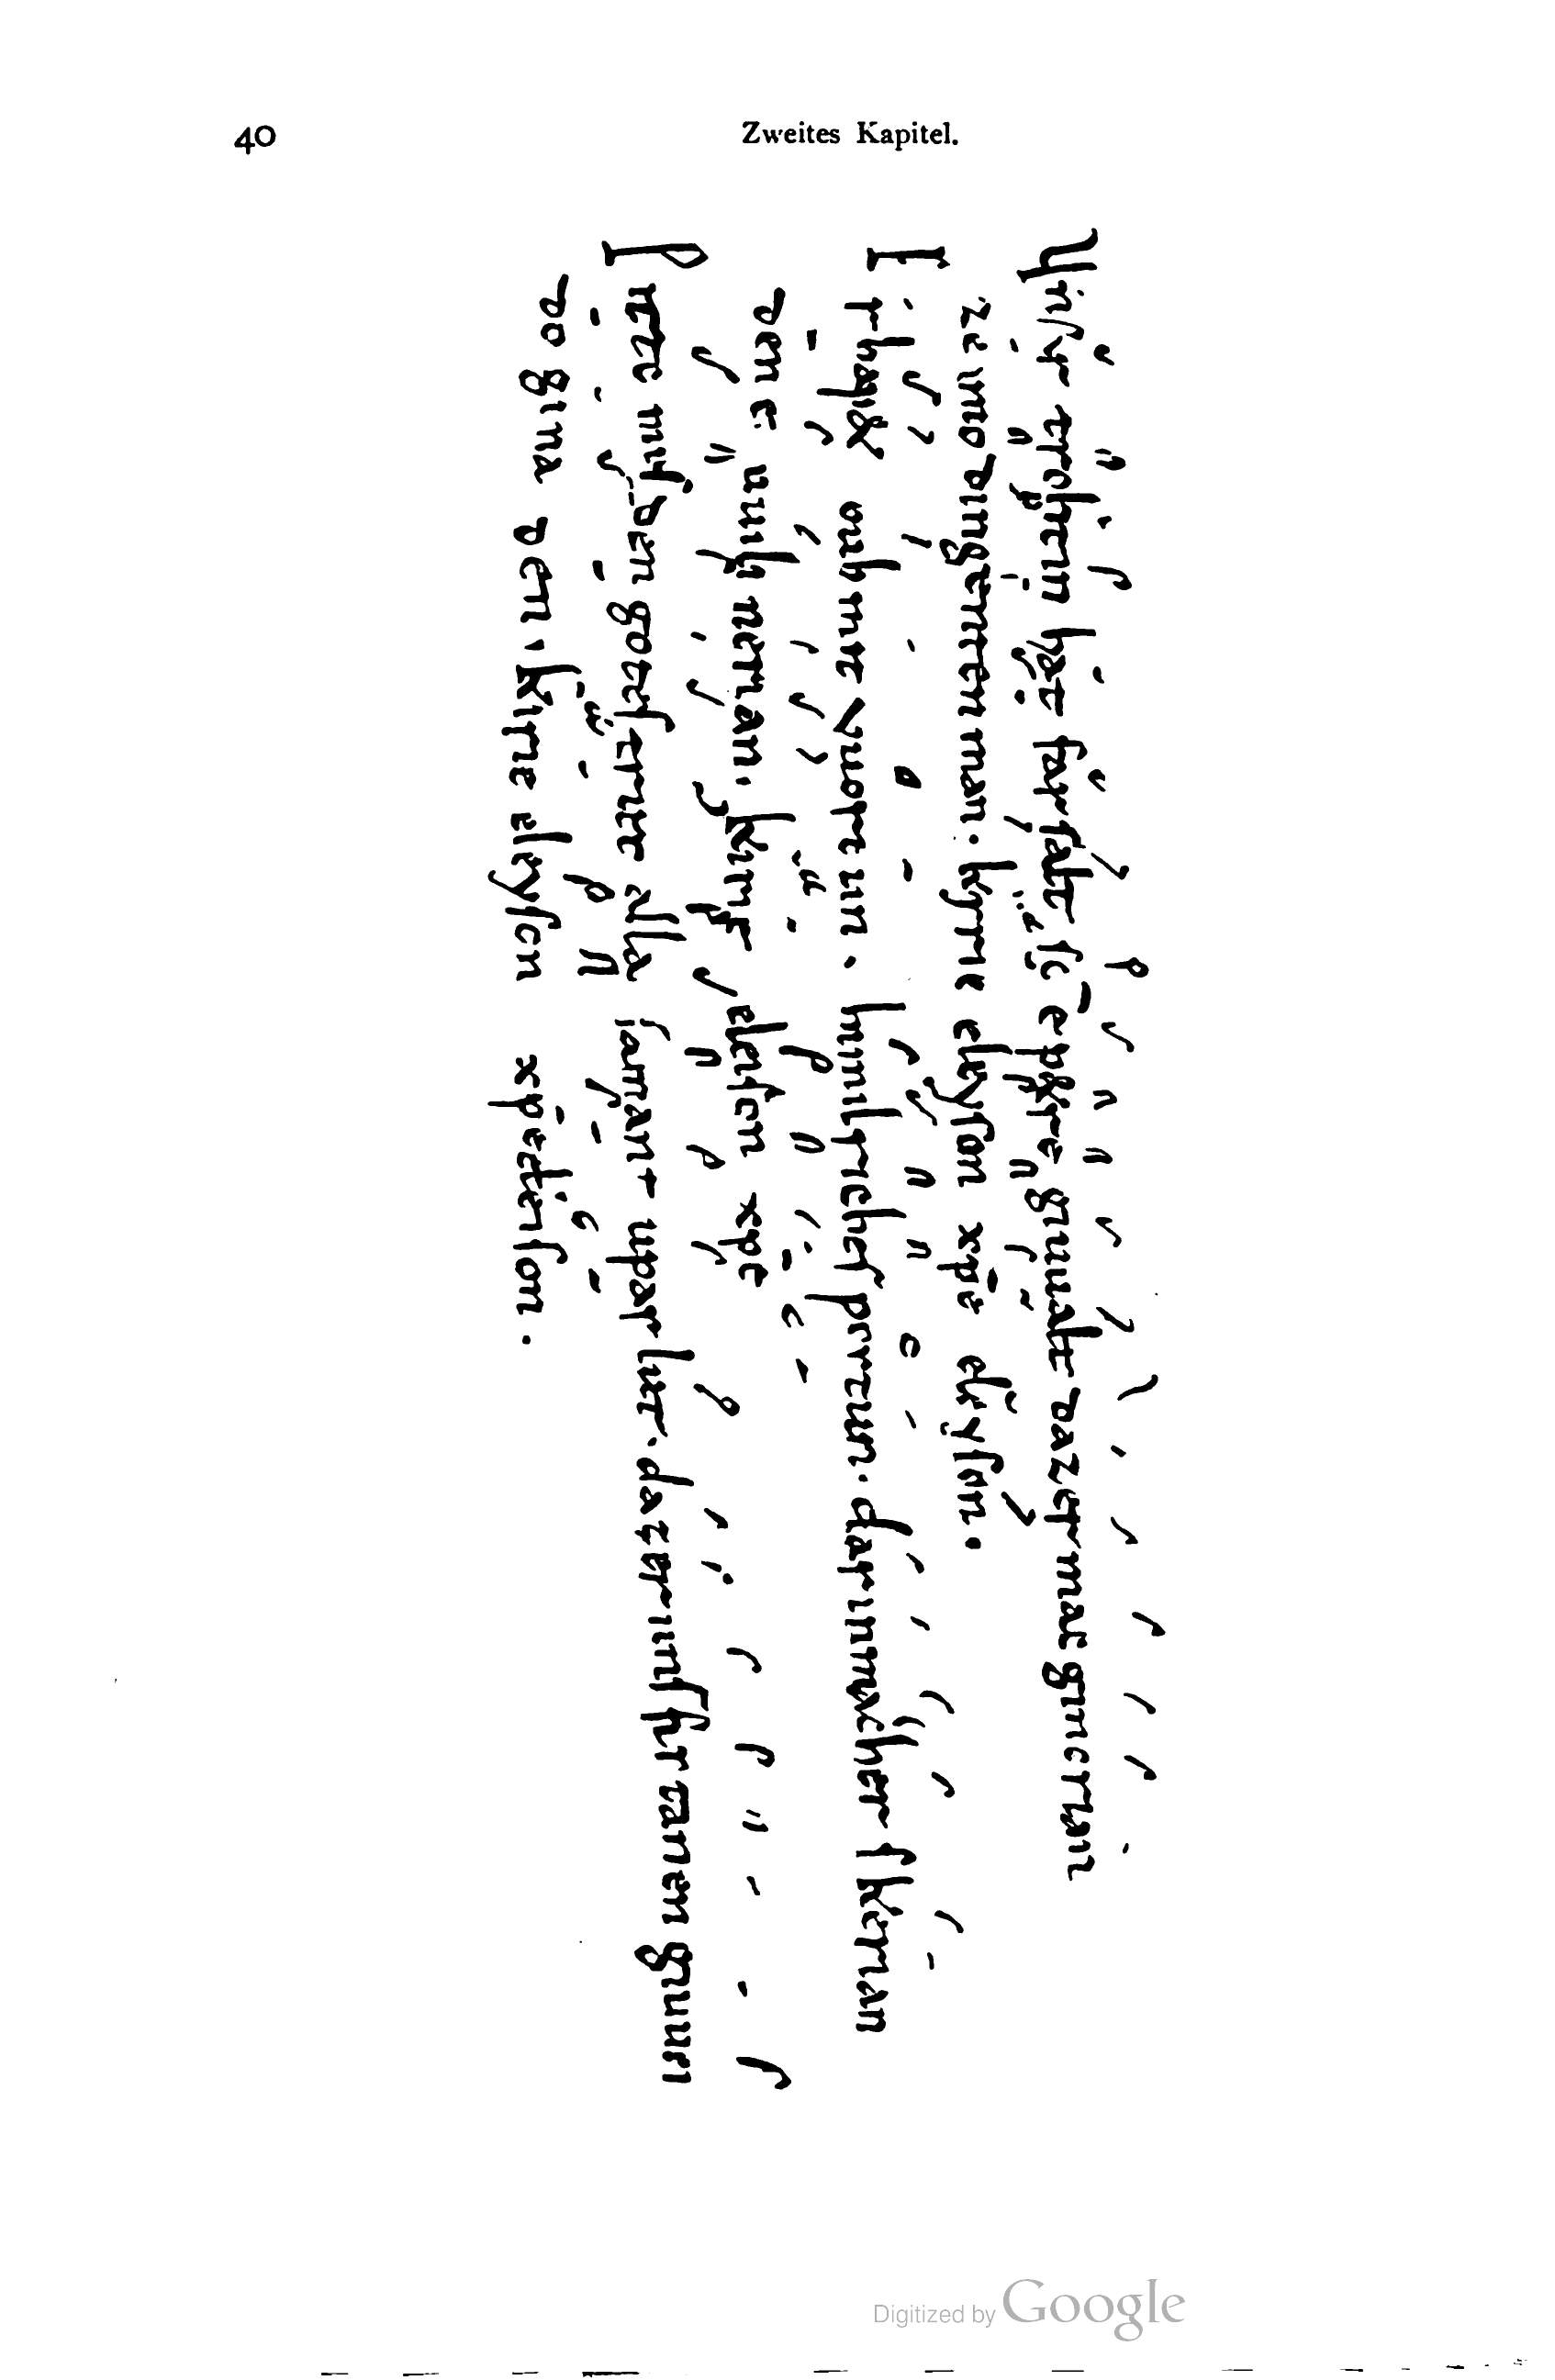 40
Zweites Kapitel.
Unsar trohtin hat farsalt sc̄e petre giuualt dazer mac ginerian
ze imo dingenten man. kyrie eleyson xp̄e eleyson.
Er hapet ouh mit vuortun. himilriches portun. dar in mach er skerian
den er uuili nerian. kirie eleison xpe
Pittemes den gotes trut alla samant upar lut. dazer uns firtanen giuuer
do ginaden. kirie eleyson xp̄e eleison.
Digitized by Google